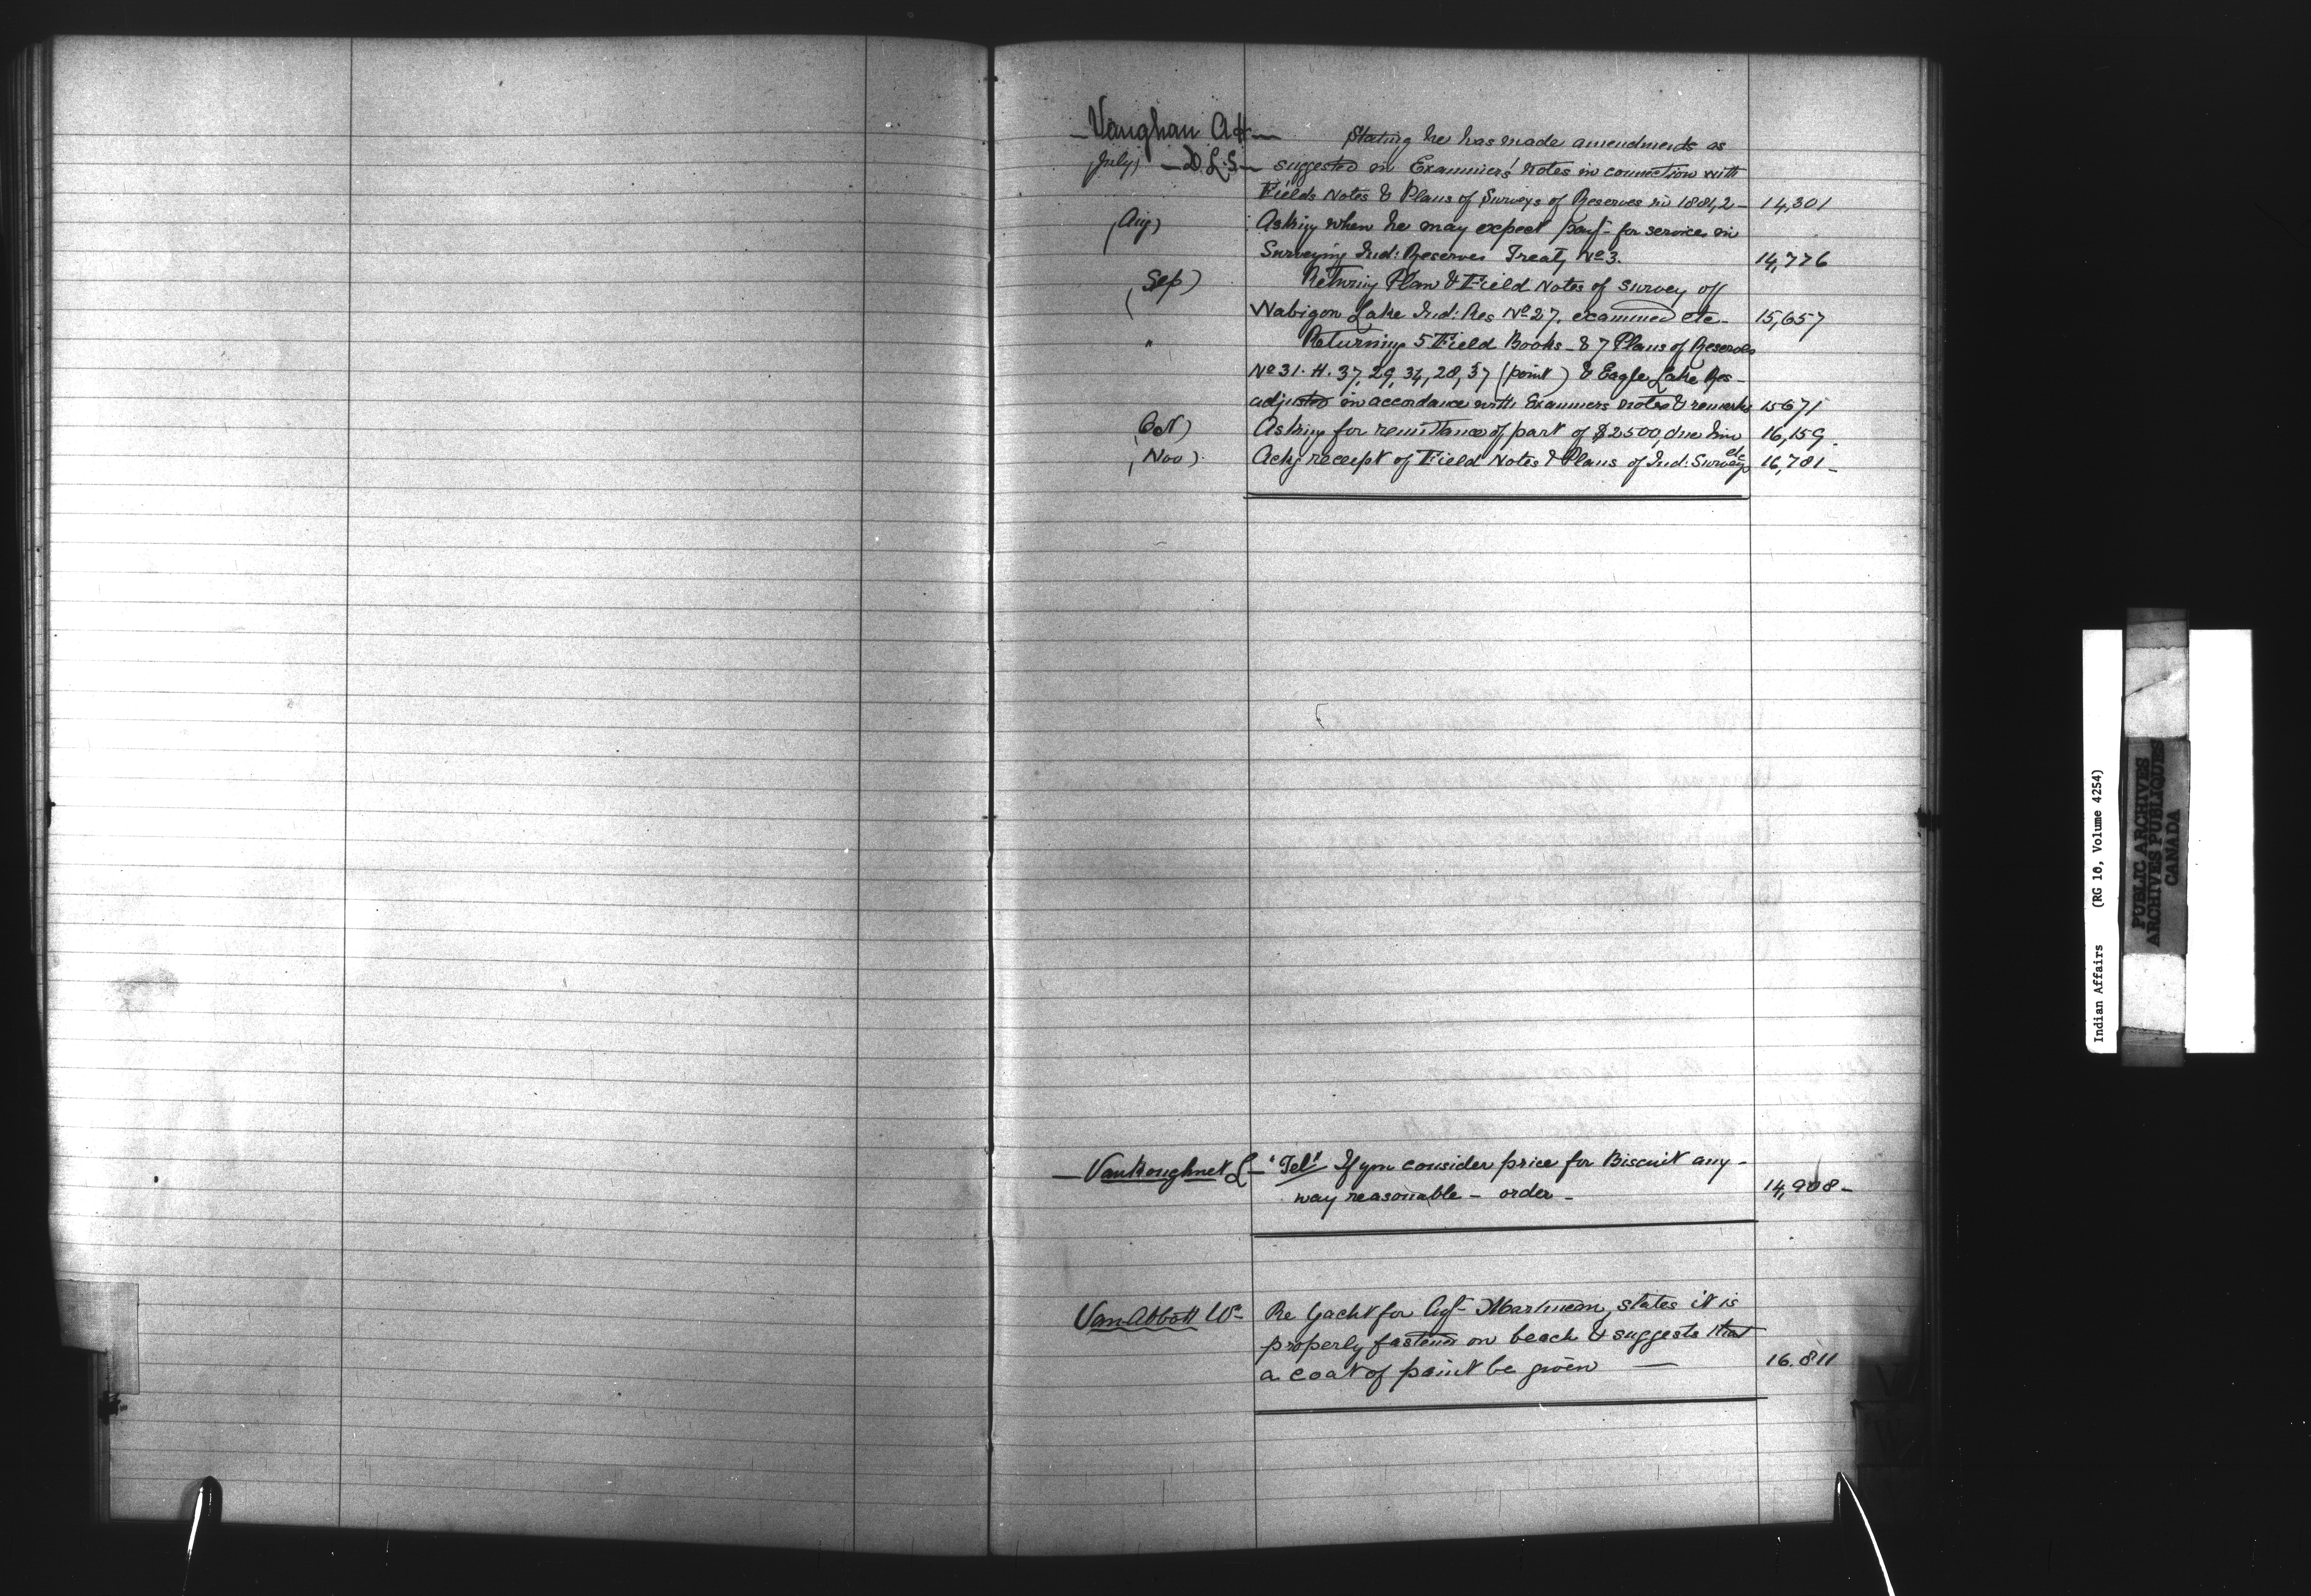 Vaughan A H — Stating he has made amendments as
(July) — D. L. S — suggested in Examiners' Notes in connection with
Fields Notes & Plans of Surveys of Reserves in 1881,2 – 14,301
(Aug) Asking when he may expect payt. for services in
Surveying Ind: Reserves Treaty No 3. 14,776
(Sep) Returning Plan & Field Notes of Survey off
Wabigon Lake Ind: Res No 27. examined etc – 15,657
" Returning 5 Field Books – & 7 Plans of Reserves
No 31. H. 37, 29, 34, 28, 37 (point) & Eagle Lake Res –
adjusted in accordance with Examiners notes & remarks 15671
(Oct) Asking for remittance of part of $2500, due him 16,159 –
(Nov) Ackg receipt of Field Notes & Plans of Ind: Surveys etc 16,781 –
— VanKoughnet L — "Tel" If you consider price for Biscuit any –
way reasonable – order – 14,908 –
Van Abbott W – Re Yacht for Agt – states it is
properly fastened on beach & suggests that
a coat of paint be given — 16.811
Indian Affairs (RG 10, Volume 4254)
PUBLIC ARCHIVES
ARCHIVES PUBLIQUES
CANADA